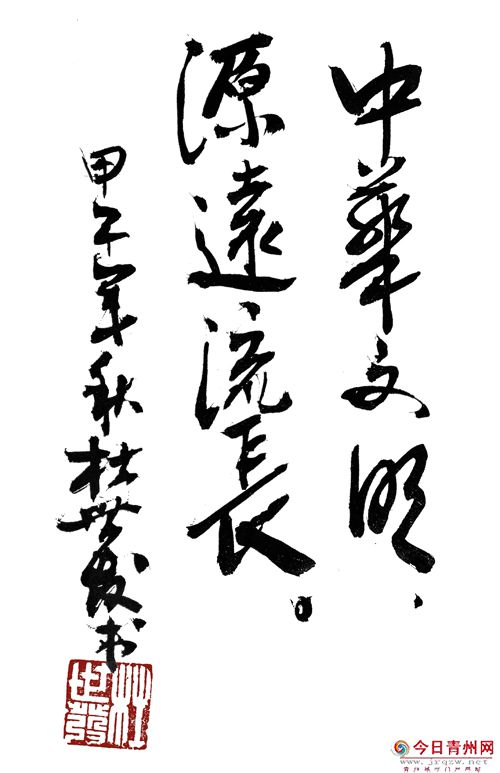 中華文明，
源遠流長。
甲午年秋杜世發书
杜世發
今日青州网
www.jrqzw.net